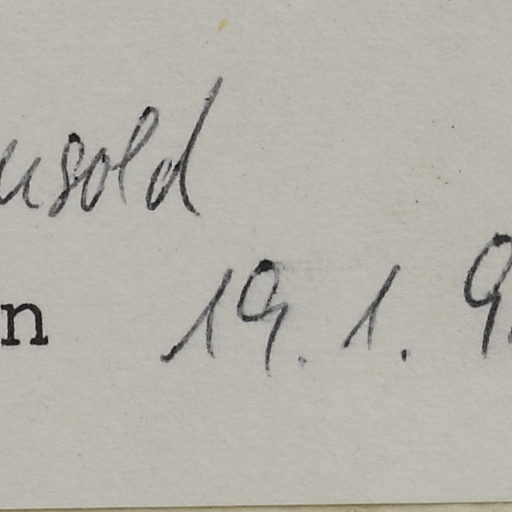 usold
n 19. 1. 9